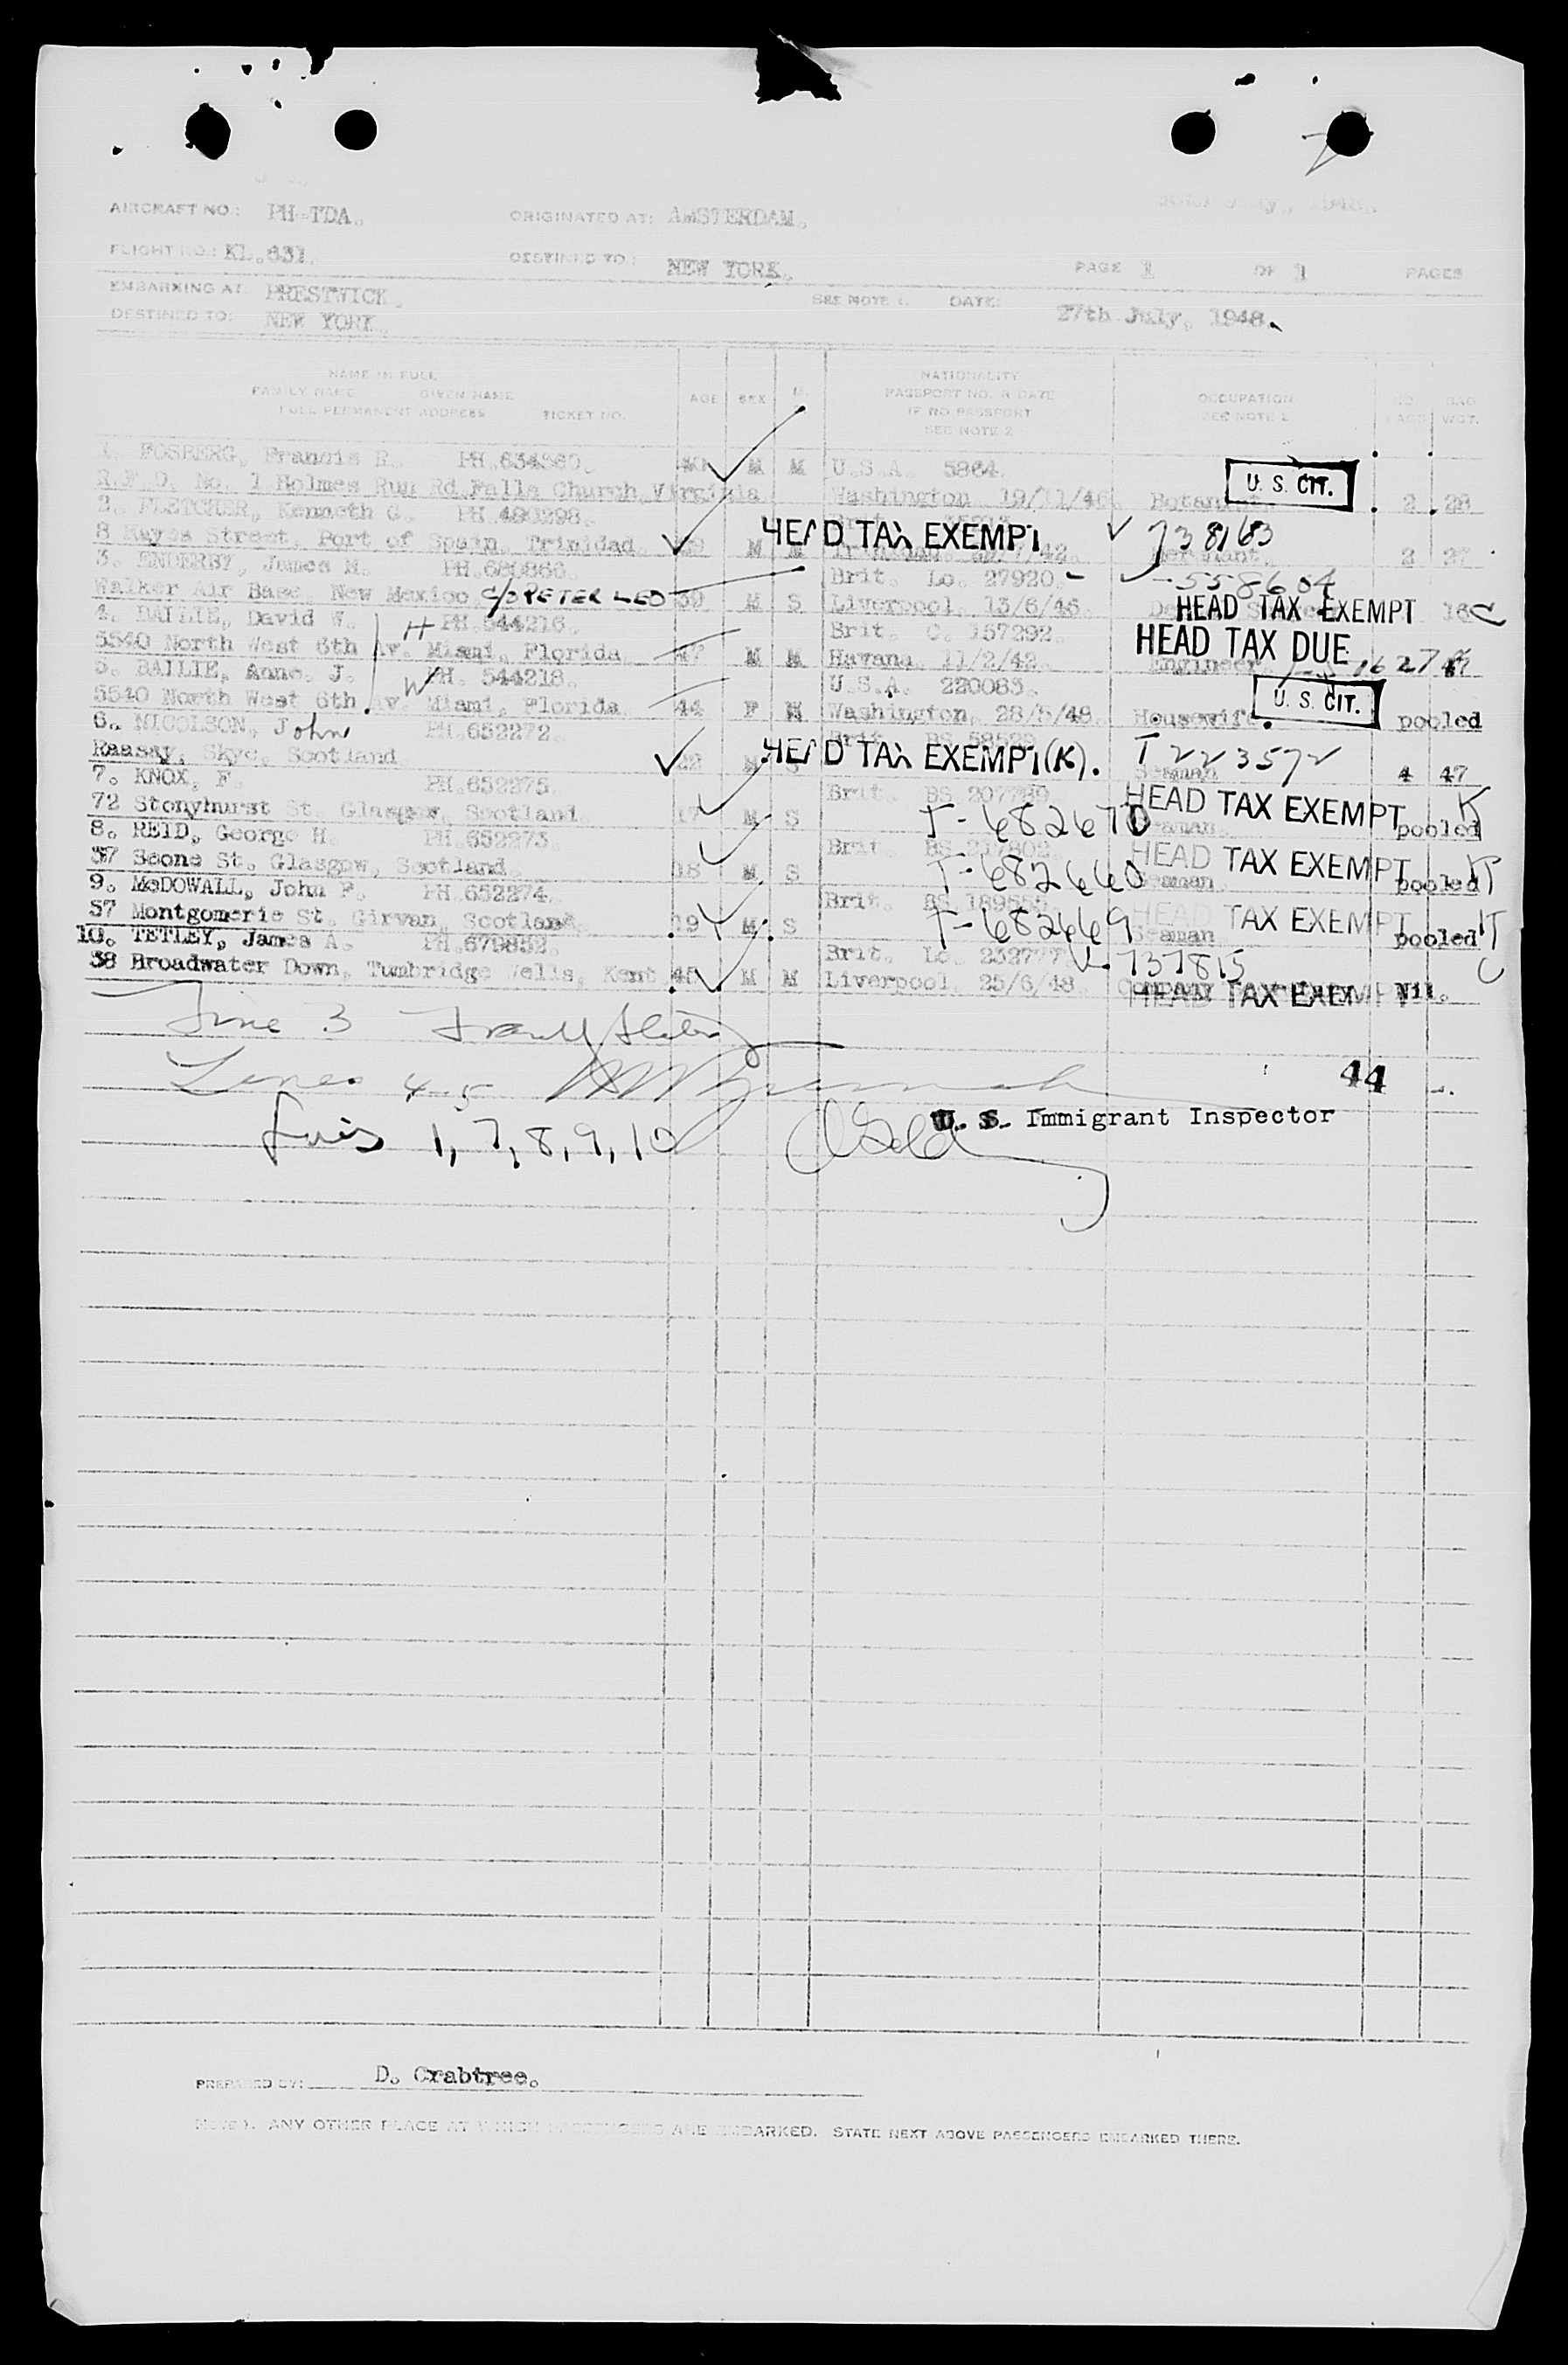 AIRCRAFT NO.: PH-TDA. ORIGINATED AT: AMSTERDAM.
FLIGHT NO.: KL.631. DESTINED TO: NEW YORK. PAGE 1 OF 1 PAGES
EMBARKING AT PRESTWICK. SEE NOTE 1. DATE: 27th July, 1948.
DESTINED TO: NEW YORK.
NAME IN FULL NATIONALITY
FAMILY NAME GIVEN NAME AGE SEX PASSPORT NO. & DATE OCCUPATION NO. BAG
FULL PERMANENT ADDRESS TICKET NO. IF NO PASSPORT SEE NOTE 2 WGT.
SEE NOTE 2
1. FOSBERG, Francis R. PH.634360. 40 M M U.S.A. 5864. U. S. CIT.
R.F.D. No. 1 Holmes Run Rd Falls Church Virginia Washington 19/11/46. Botanist. 2 28
2. FLETCHER, Kenneth G. PH.490298. HEAD TAX EXEMPT 738163
8 Hayes Street, Port of Spain, Trinidad. M M Merchant. 2 27
3. ENDERBY, James M. Brit. Lo. 27920. 558604
Walker Air Base, New Mexico c/o PETER LEO 39 M S Liverpool, 13/6/46. HEAD TAX EXEMPT 16 C
4. BAILIE, David W. H PH.544216. Brit. C. 157292. HEAD TAX DUE
5540 North West 6th Av. Miami, Florida. 47 M M Havana, 11/2/42. Engineer. 47
5. BAILIE, Anne. J. W PH. 544218. U.S.A. 220083. U. S. CIT.
5540 North West 6th Av. Miami, Florida. 44 F M Washington, 28/5/48. Housewife. pooled
6. NICOLSON, John PH.652272. HEAD TAX EXEMPT (K). T 223572
Raasay, Skye, Scotland M S Seaman 4 47
7. KNOX, F. PH.652275. Brit. BS 207789 HEAD TAX EXEMPT K
72 Stonyhurst St. Glasgow, Scotland. 17 M S T-682670 Seaman. pooled
8. REID, George H. PH.652273. Brit. HEAD TAX EXEMPT K
37 Scone St. Glasgow, Scotland 18 M S T-682660 Seaman. pooled
9. McDOWALL, John P. PH.652274. Brit. HEAD TAX EXEMPT K
57 Montgomerie St. Girvan, Scotland. 19 M S T-682669 Seaman pooled
10. TETLEY, James A. PH.679852. Brit. Lo. 737815 C
38 Broadwater Down, Tumbridge Wells, Kent 45 M M Liverpool, 25/6/48. Company HEAD TAX EXEMPT Nil.
Line 3
Lines 4-5 44
U. S. Immigrant Inspector
1, 7, 8, 9, 10
PREPARED BY: D. Crabtree.
NOTE 1. ANY OTHER PLACE AT WHICH PASSENGERS ARE EMBARKED. STATE NEXT ABOVE PASSENGERS EMBARKED THERE.